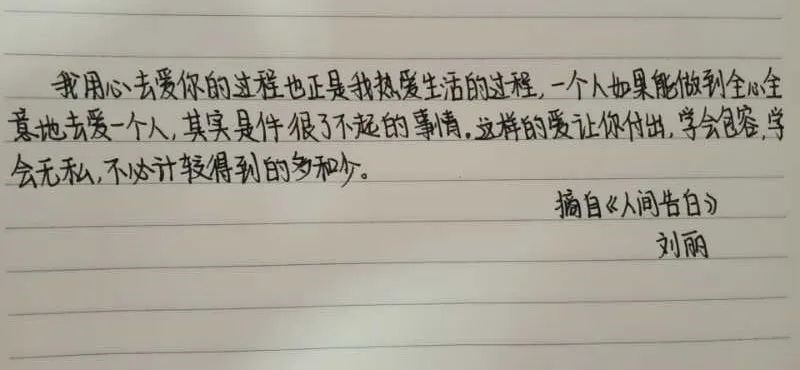 我用心去爱你的过程也正是我热爱生活的过程,一个人如果能做到全心全
意地去爱一个人,其实是件很了不起的事情。这样的爱让你付出,学会包容,学
会无私,不必计较得到的多和少。
摘自《人间告白》
刘丽